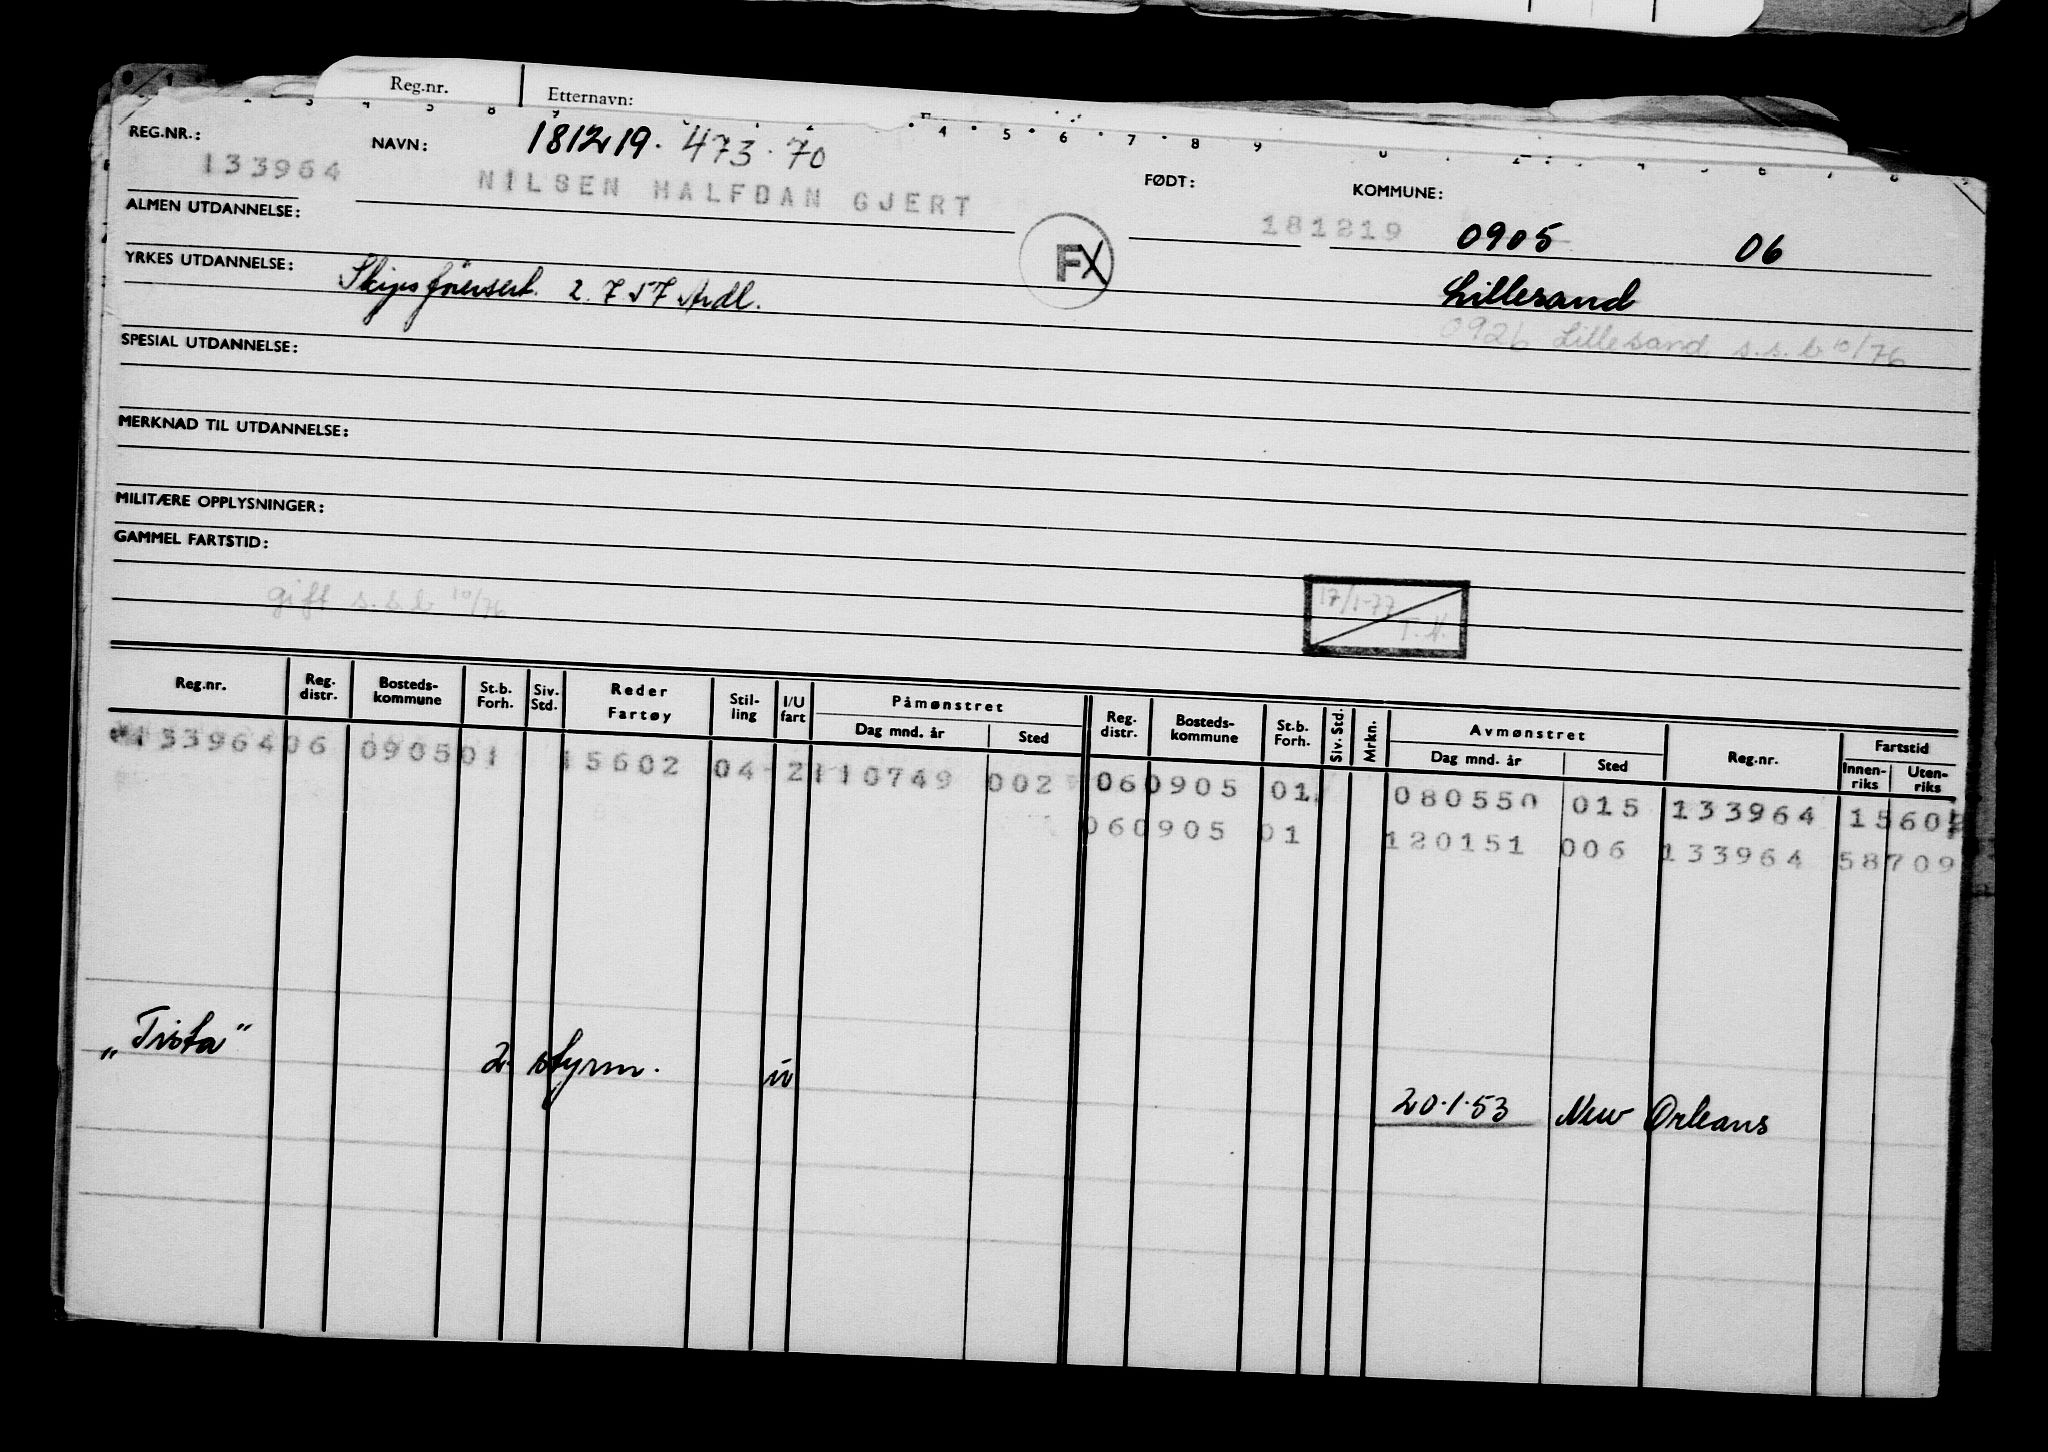 Reg.nr. Etternavn:
REG.NR.: NAVN: 181219. 473.70 FØDT: KOMMUNE:
133964 NILSEN HALFDAN GJERT 181219 0905 06
ALMEN UTDANNELSE:
FX
YRKES UTDANNELSE: Skipsførersert. 2.7 57 Ardl. Lillesand
0926 Lillesand s.s.b 10/76
SPESIAL UTDANNELSE:
MERKNAD TIL UTDANNELSE:
MILITÆRE OPPLYSNINGER:
GAMMEL FARTSTID:
gift s.s.b 10/76 17/1-77
T.N.
Reg.nr. Reg. distr. Bosteds- kommune St.b. Forh. Siv. Std. Reder Fartøy Stil- ling I/U fart Påmønstret Dag mnd. år Sted Reg. distr. Bosteds- kommune St.b. Forh. Siv. Std. Mrkn. Avmønstret Dag mnd. år Sted Reg.nr. Fartstid Innen- riks Uten- riks
133964 06 0905 01 15602 04 2 110749 002 06 0905 01 080550 015 133964 15602
06 0905 01 120151 006 133964 58709
„Tista" 2. styrm. u 20.1.53 New Orleans